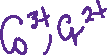 Co³⁺, Cr²⁺